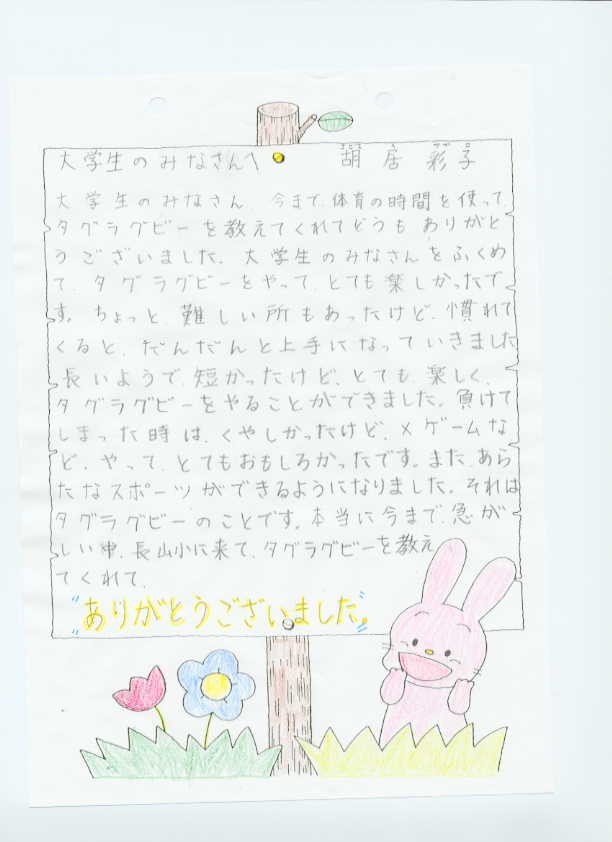 大学生のみなさんへ 胡居 彩子
大学生のみなさん、今まで、体育の時間を使って、
タグラグビーを教えてくれてどうもありがと
うございました。大学生のみなさんをふくめ
て、タグラグビーをやって、とても楽しかったで
す。ちょっと、難しい所もあったけど、慣れて
くると、だんだんと上手になっていきました
長いようで、短かったけど、とても、楽しく、
タグラグビーをやることができました。負けて
しまった時は、くやしかったけど、×ゲームな
ど、やって、とてもおもしろかったです。また、あら
たなスポーツができるようになりました。それは
タグラグビーのことです。本当に今まで、急が
しい中、長山小に来て、タグラグビーを教え
てくれて、
"ありがとうございました。"